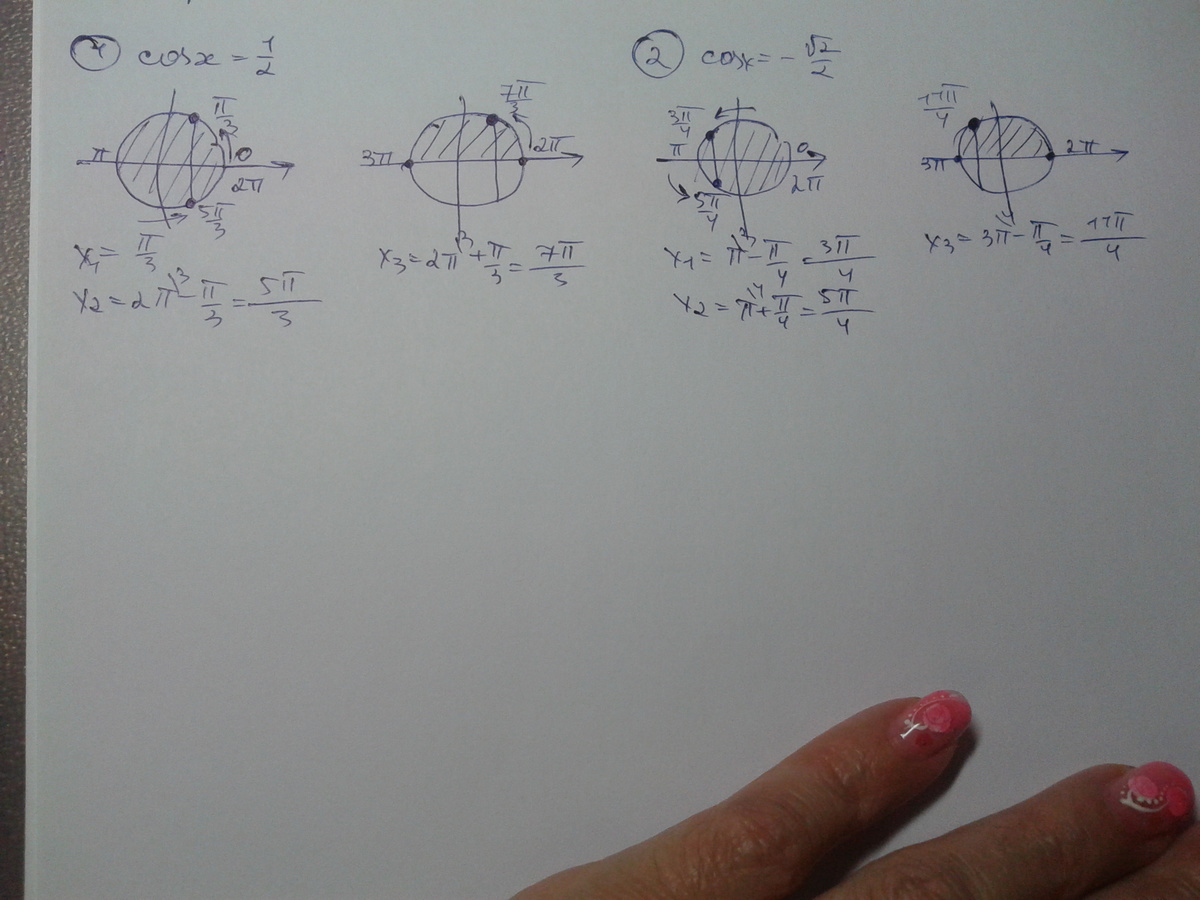 1 cosx = 1/2
π/3
π 0
2π
5π/3
x₁ = π/3
x₂ = 2π\3 - π/3 = 5π/3
7π/3
3π 2π
x₃ = 2π\3 + π/3 = 7π/3
2 cosx = -√2/2
3π/4
π 0
2π
5π/4
x₁ = π\3 - π/4 = 3π/4
x₂ = π\4 + π/4 = 5π/4
11π/4
3π 2π
x₃ = 3π\4 - π/4 = 11π/4